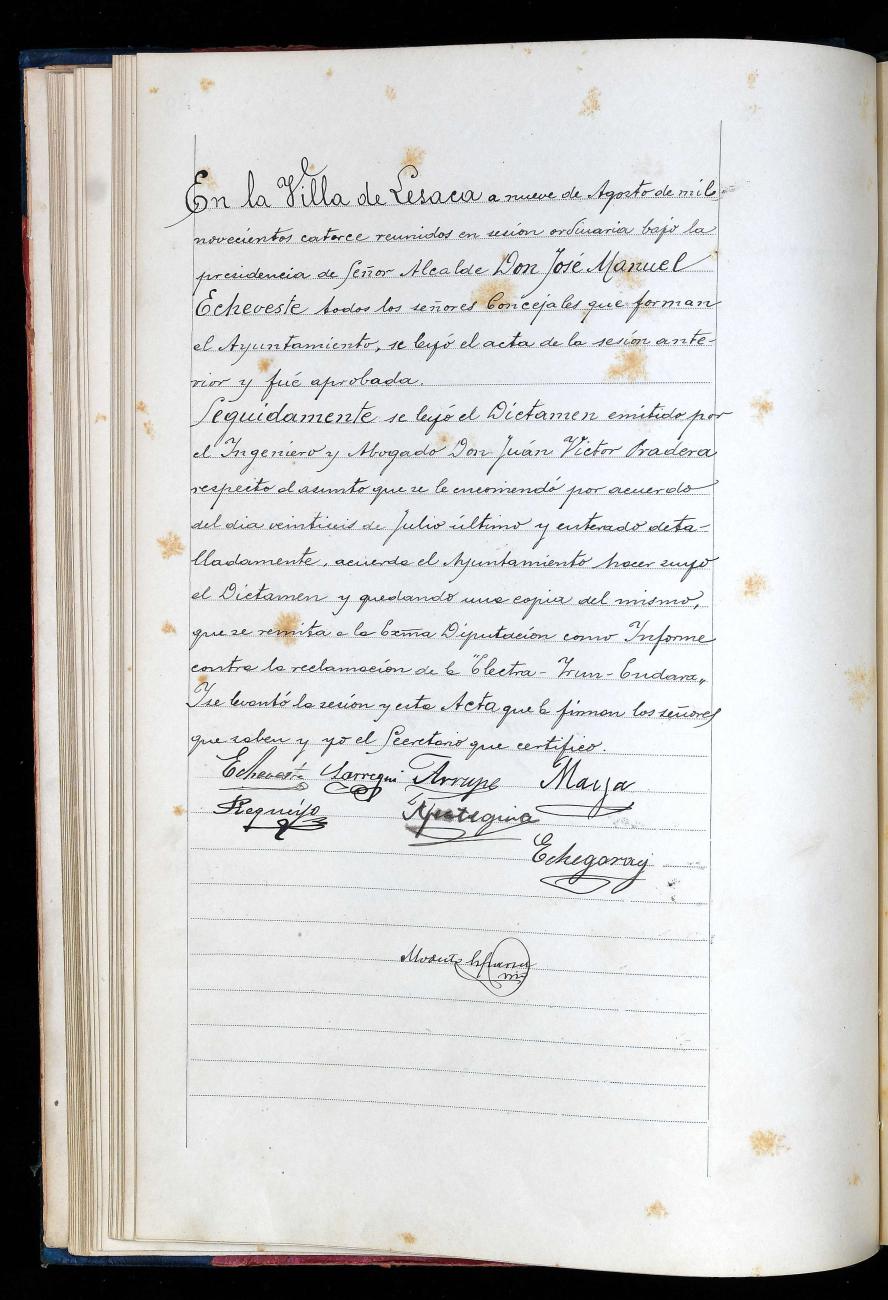 En la Villa de Lesaca a nueve de Agosto de mil
novecientos catorce reunidos en sesión ordinaria bajo la
presidencia de Señor Alcalde Don José Manuel
Echeveste todos los señores Concejales que forman
el Ayuntamiento, se leyó el acta de la sesión ante-
rior y fué aprobada.
Seguidamente se leyó el Dictamen emitido por
el Ingeniero y Abogado Don Juán Victor Pradera
respecto al asunto que se le encomendó por acuerdo
del dia veintiseis de Julio último y enterado deta-
lladamente, acuerda el Ayuntamiento hacer suyo
el Dictamen y quedando una copia del mismo,
que se remita a la Exma Diputación como Informe
contra la reclamación de la "Electra-Irun-Endara„
Y se levantó la sesión y esta Acta que la firman los señores
que saben y yo el Secretario que certifico.
Echeveste Larregui Arrupe Maya
Requijo Apestegina
Echegaray